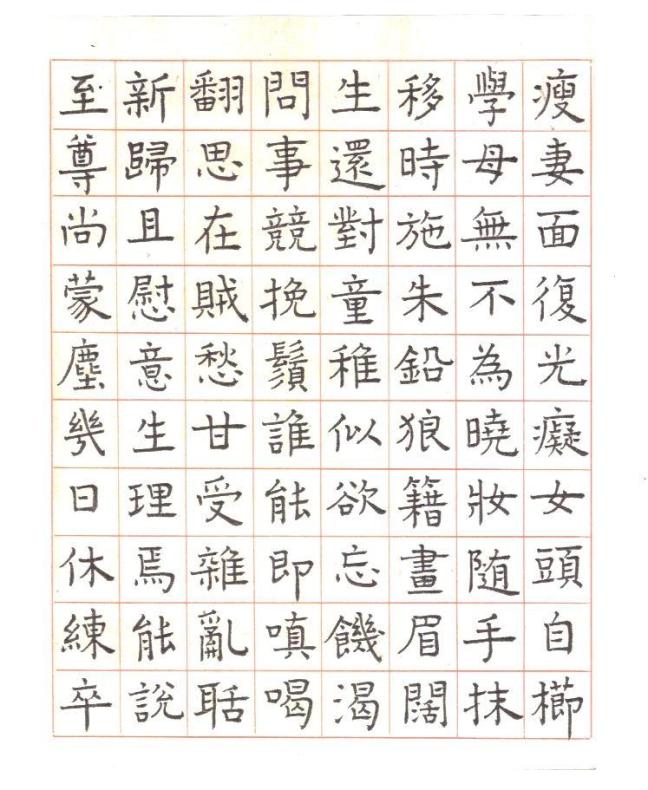 瘦妻面復光癡女頭自櫛
學母無不為曉妝随手抹
移時施朱鉛狼籍畫眉闊
生還對童稚似欲忘饑渴
問事競挽鬚誰能即嗔喝
翻思在賊愁甘受雜亂聒
新歸且慰意生理焉能說
至尊尚蒙塵幾日休練卒